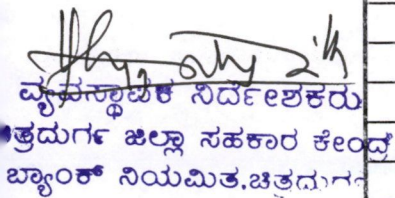 ವ್ಯವಸ್ಥಾಪಕ ನಿರ್ದೇಶಕರು
ತ್ರದುರ್ಗ ಜಿಲ್ಲಾ ಸಹಕಾರ ಕೇಂದ್ರ
ಬ್ಯಾಂಕ್ ನಿಯಮಿತ.ಚಿತ್ರದುರ್ಗ